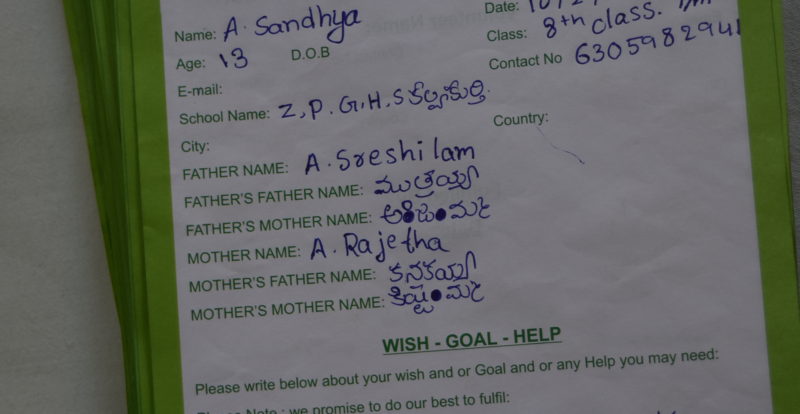 Name: A. Sandhya
Date:
Age: 13 D.O.B
Class: 8th class.
Contact No 6305982941
E-mail:
School Name: Z.P.G.H.S కల్వకుర్తి.
City:
Country:
FATHER NAME: A. Sreshilam
FATHER'S FATHER NAME: ముత్రయ్య
FATHER'S MOTHER NAME:
MOTHER NAME: A. Rajetha
MOTHER'S FATHER NAME: కనకయ్య
MOTHER'S MOTHER NAME:
WISH - GOAL - HELP
Please write below about your wish and or Goal and or any Help you may need:
Please Note : we promise to do our best to fulfil: